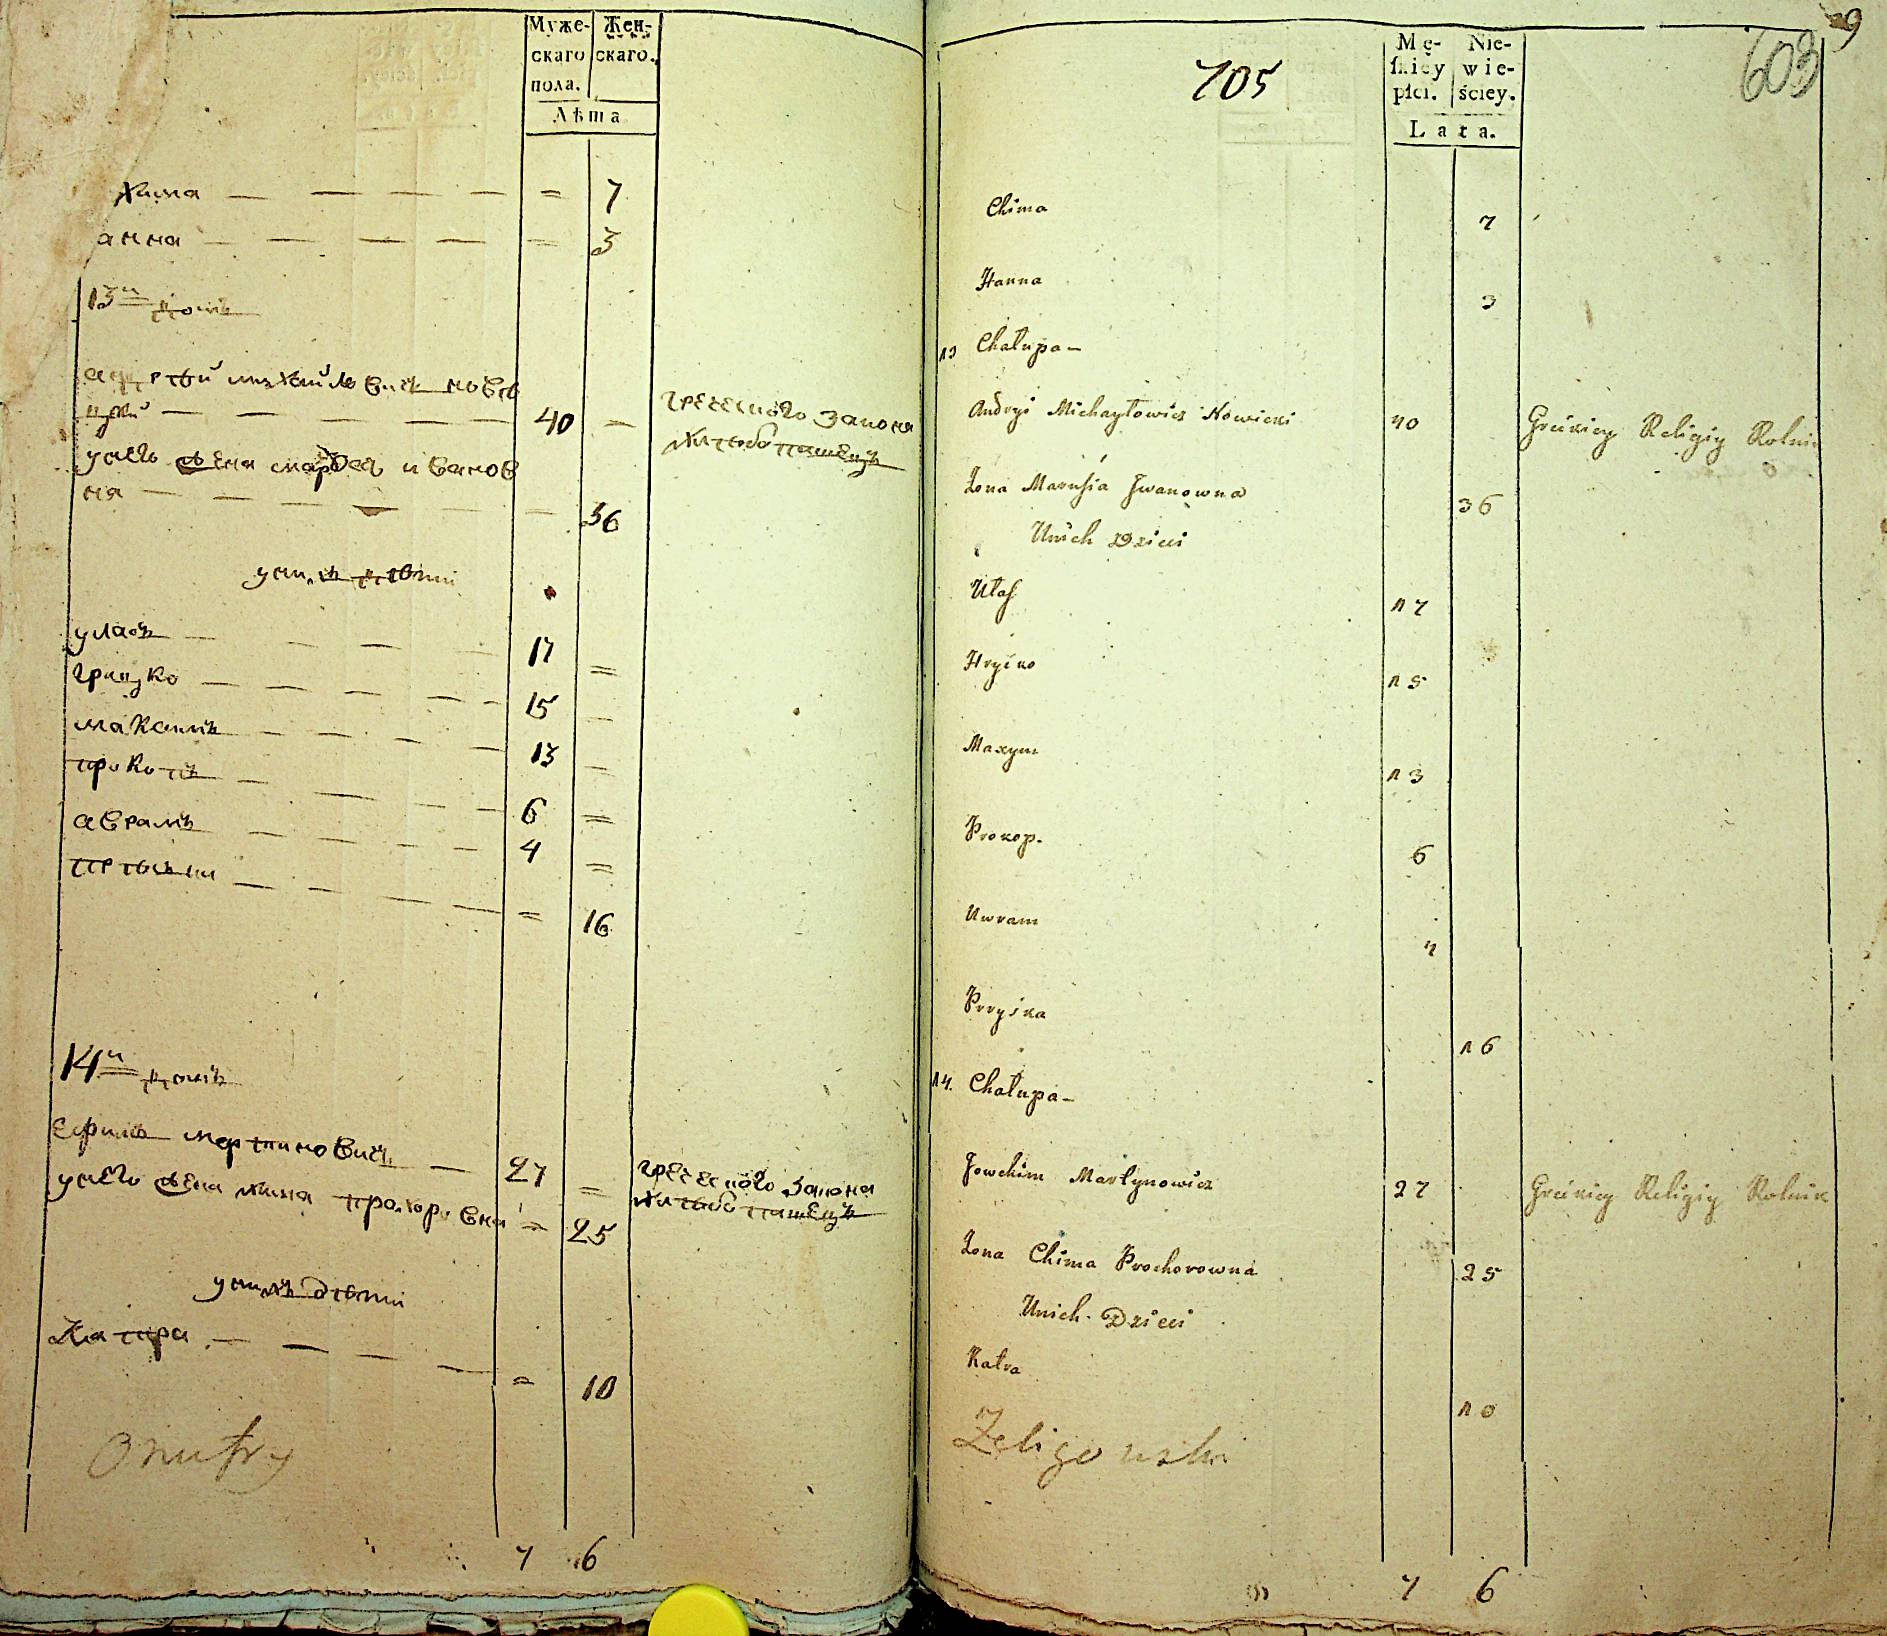 Муже-
скаго
пола.
Жен-
скаго.
Лѣта
Хима — — — — = 7
анна — — — — = 3
13й домъ
андрѣй михайловичъ новѣ
цкий — — — — 40 —
греческого закона
хлѣбопашецъ
унего жена марѳа иванов
на — — — — — 36
унихъ дѣти
уласъ — — — — 17 =
грицко — — — — 15 —
максимъ — — — — 13 —
прокопъ — — — — 6 =
аврамъ — — — — 4 =
— — — — = 16
14й домъ
ефимъ мартиновичъ — 27 =
греческого закона
хлѣбопашецъ
унего жена хима прохоровна = 25
унихъ дѣти
Катра — — — — = 10
Onufry
7 6
9
705
603
Mę-
skiey
płci.
Nie-
wie-
ściey.
Lata.
Chima 7
Hanna 3
13 Chałupa —
Andryi Michayłowicz Nowicki 40 Greckiey Religiy Rolnik
Żona Marusia Jwanowna 36
Unich Dzieci
Ułas 17
Hryćko 15
Maxym 13
Prokop. 6
Awram 4
Pryśka 16
14. Chałupa —
Jowchim Martynowicz 27 Greckiey Religiy Rolnik
Żona Chima Prochorowna 25
Unich Dzieci
Katra 10
Żeligowski
7 6